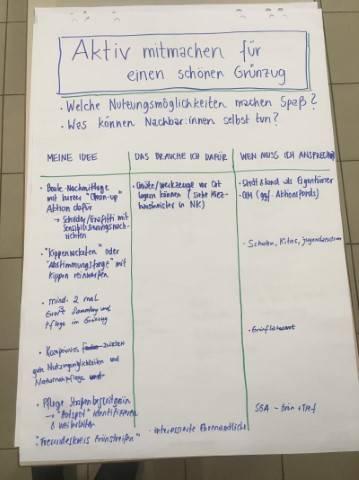 Aktiv mitmachen für
einen schönen Grünzug
• Welche Nutzungsmöglichkeiten machen Spaß?
• Was können Nachbar:innen selbst tun?
MEINE IDEE
• Boule-Nachmittage
mit kurzer "Clean-up"
Aktion dafür
→ Schilder/Graffiti mit
Sensibilisierungsnach-
richten
• "Kippenkasten" oder
"Abstimmungsfrage" mit
Kippen reinwerfen
• mind. 2 mal
Pflege im Grünzug
• Kompromiss zwischen
guten Nutzungsmöglichkeiten und
• Pflege Straßenbegleitgrün
→ "Hotspot" identifizieren
& weiterleiten
"Freundeskreis Grünstreifen"
DAS BRAUCHE ICH DAFÜR
• Geräte/Werkzeuge vor Ort
lagern können (siehe
in NK)
• Interessierte Ehrenamtliche
WEN MUSS ICH ANSPRECHEN
• Stadt & Land als Eigentümer
• QM (ggf. Aktionsfonds)
• Schulen, Kitas, Jugendzentrum
• Grünflächenamt
SGA - Grün + Tief